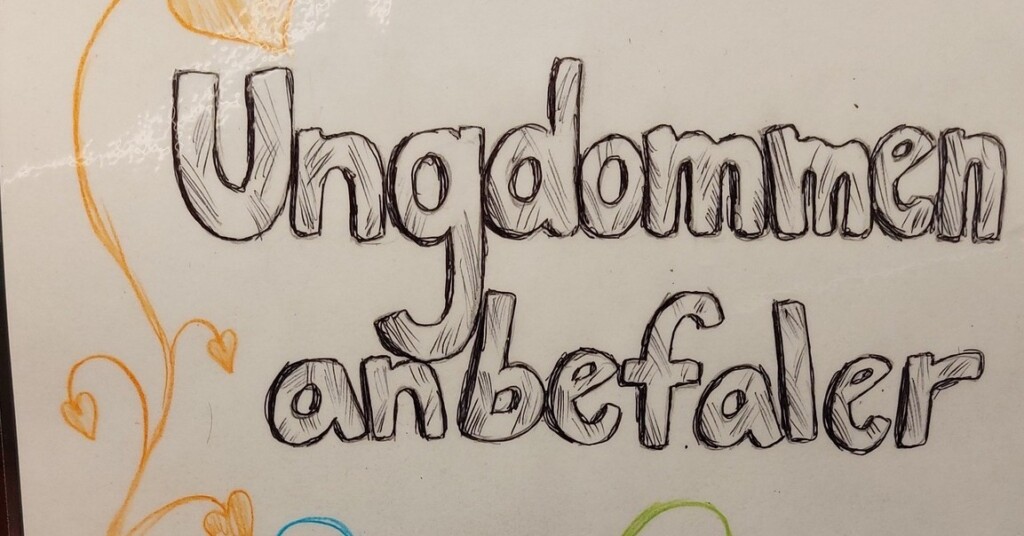 Ungdommen
anbefaler